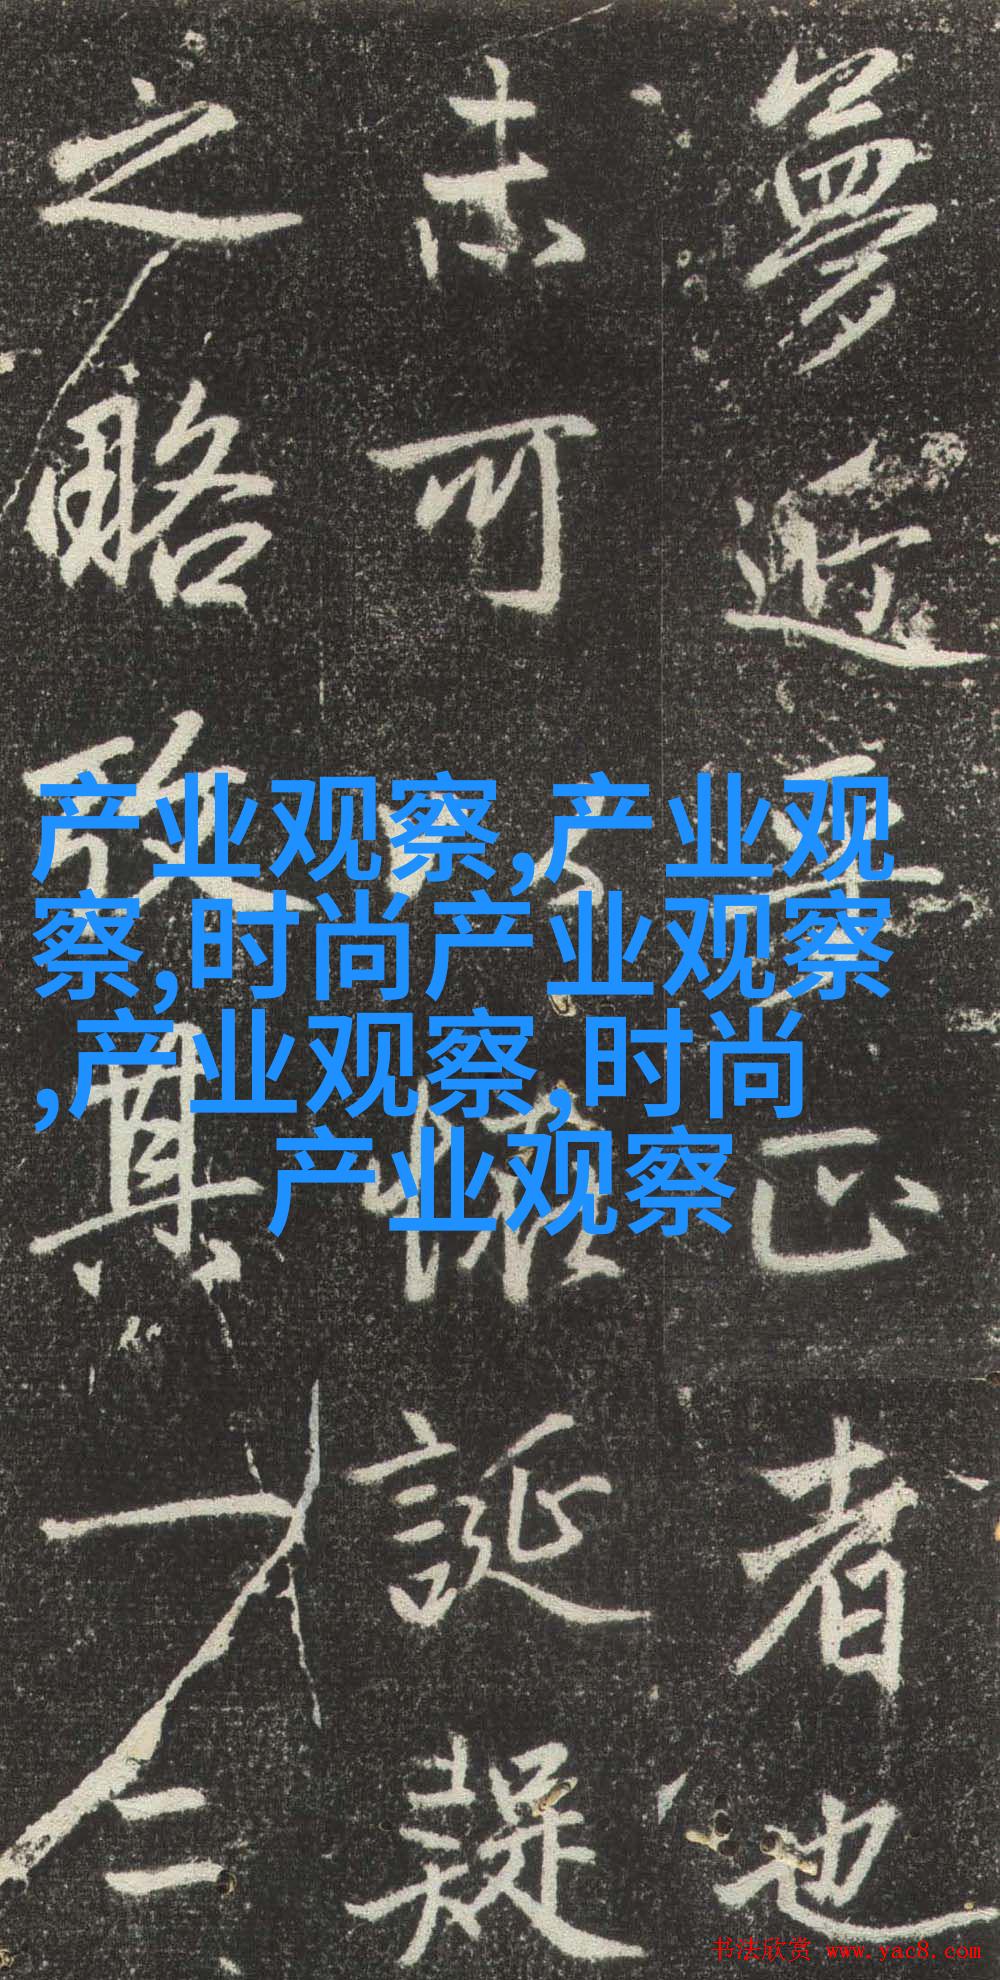 夢近正者也
未可誕疑
之略真一
产业观察,产业观
察,时尚产业观察
,产业观察,时尚
产业观察
书法欣赏 www.yac8.com